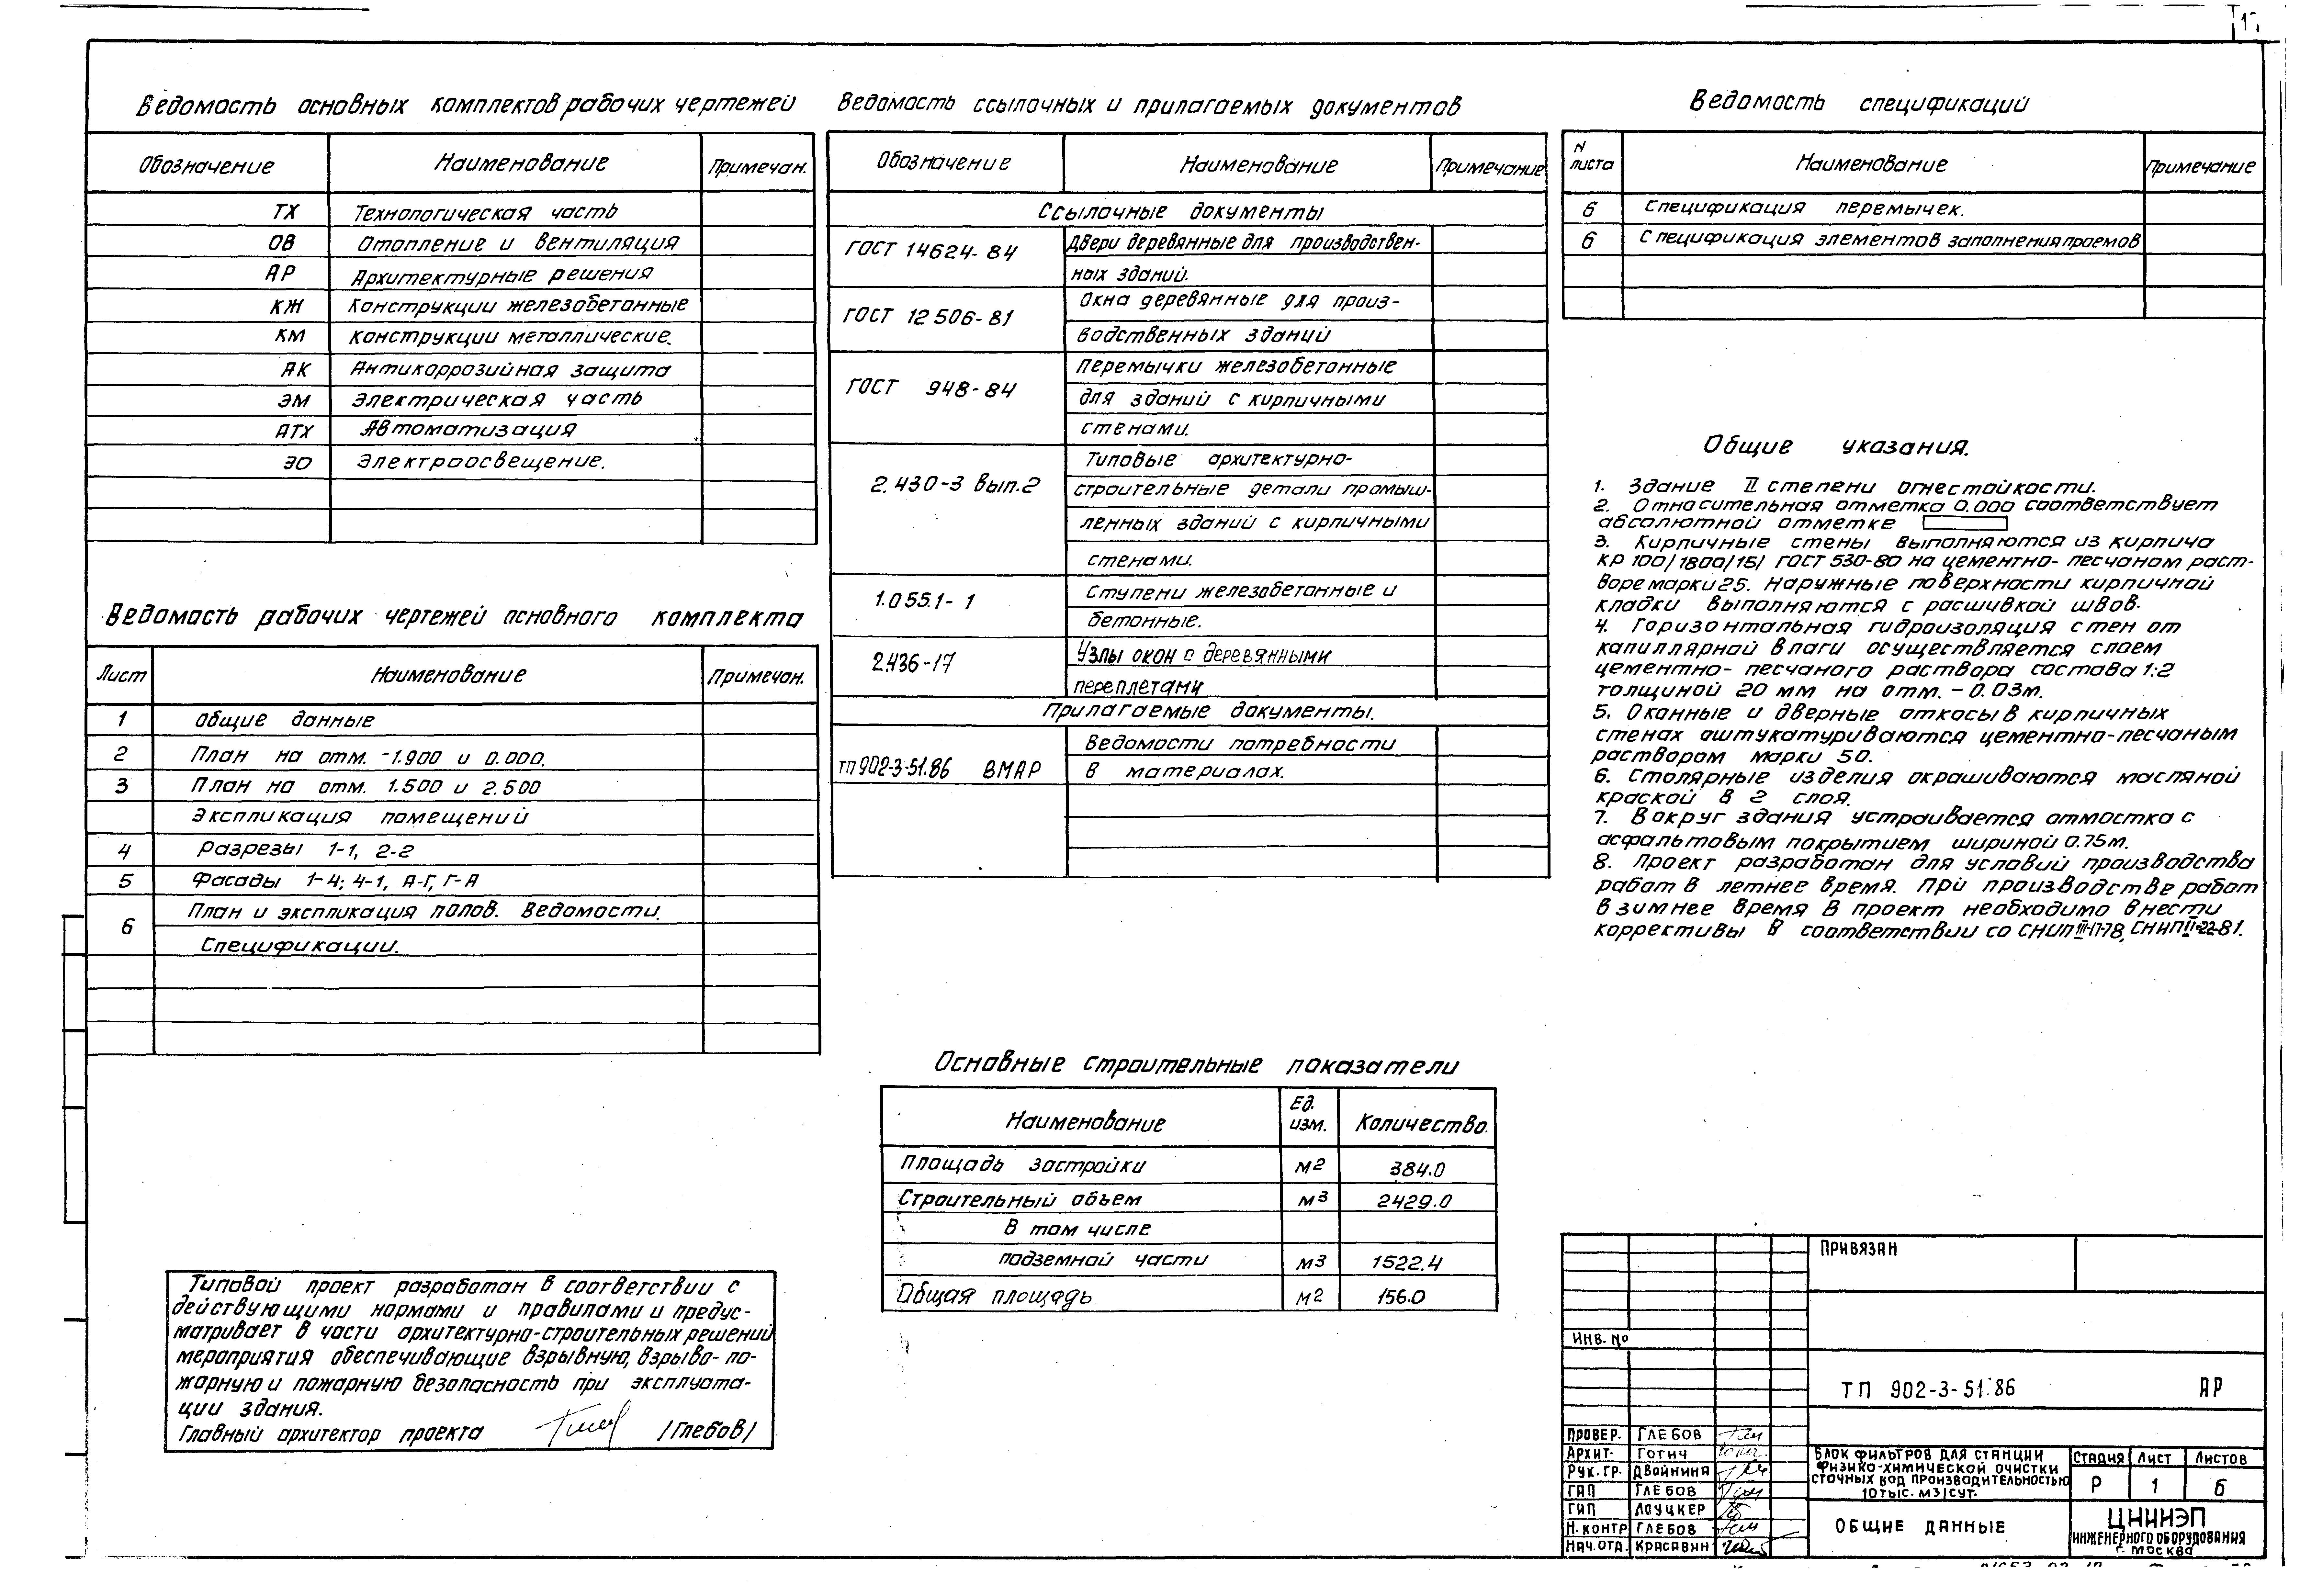 Ведомость основных комплектов рабочих чертежей
Обозначение Наименование Примечан.
ТХ Технологическая часть
ОВ Отопление и вентиляция
АР Архитектурные решения
КЖ Конструкции железобетонные
КМ Конструкции металлические.
АК Антикоррозийная защита
ЭМ Электрическая часть
АТХ Автоматизация
ЭО Электроосвещение.
Ведомость рабочих чертежей основного комплекта
Лист Наименование Примечан.
1 Общие данные
2 План на отм. -1.900 и 0.000.
3 План на отм. 1.500 и 2.500
Экспликация помещений
4 Разрезы 1-1, 2-2
5 Фасады 1-4; 4-1, А-Г, Г-А
6 План и экспликация полов. Ведомости.
Спецификации.
Типовой проект разработан в соответствии с
действующими нормами и правилами и предус-
матривает в части архитектурно-строительных решений
мероприятия обеспечивающие взрывную, взрыво-по-
жарную и пожарную безопасность при эксплуата-
ции здания.
Главный архитектор проекта /Глебов/
Ведомость ссылочных и прилагаемых документов
Обозначение Наименование Примечание
Ссылочные документы
ГОСТ 14624-84 Двери деревянные для производствен-
ных зданий.
ГОСТ 12506-81 Окна деревянные для произ-
водственных зданий
ГОСТ 948-84 Перемычки железобетонные
для зданий с кирпичными
стенами.
2.430-3 вып.2 Типовые архитектурно-
строительные детали промыш-
ленных зданий с кирпичными
стенами.
1.055.1-1 Ступени железобетонные и
бетонные.
2.436-17 Узлы окон с деревянными
переплетами
Прилагаемые документы.
ТП 902-3-51.86 ВМАР Ведомости потребности
в материалах.
Основные строительные показатели
Наименование Ед. изм. Количество.
Площадь застройки м2 384.0
Строительный объем м3 2429.0
В том числе
подземной части м3 1522.4
Общая площадь м2 156.0
Ведомость спецификаций
N листа Наименование Примечание
6 Спецификация перемычек.
6 Спецификация элементов заполнения проемов
Общие указания.
1. Здание II степени огнестойкости.
2. Относительная отметка 0.000 соответствует
абсолютной отметке
3. Кирпичные стены выполняются из кирпича
КР 100/1800/15/ ГОСТ 530-80 на цементно-песчаном раст-
воре марки 25. Наружные поверхности кирпичной
кладки выполняются с расшивкой швов.
4. Горизонтальная гидроизоляция стен от
капиллярной влаги осуществляется слоем
цементно-песчаного раствора состава 1:2
толщиной 20 мм на отм. -0.03м.
5. Оконные и дверные откосы в кирпичных
стенах оштукатуриваются цементно-песчаным
раствором марки 50.
6. Столярные изделия окрашиваются масляной
краской в 2 слоя.
7. Вокруг здания устраивается отмостка с
асфальтовым покрытием шириной 0.75м.
8. Проект разработан для условий производства
работ в летнее время. При производстве работ
в зимнее время в проект необходимо внести
коррективы в соответствии со СНиП III-17-78, СНиП II-22-81.
Привязан
Инв. №
ТП 902-3-51.86 АР
Провер. Глебов
Архит. Готич
Рук. гр. Двойнина
ГАП Глебов
ГИП Лоуцкер
Н. контр Глебов
Нач. отд. Красавин
Блок фильтров для станции
физико-химической очистки
сточных вод производительностью
10 тыс. м3/сут.
Стадия Лист Листов
Р 1 6
Общие данные
ЦНИИЭП
инженерного оборудования
г. Москва